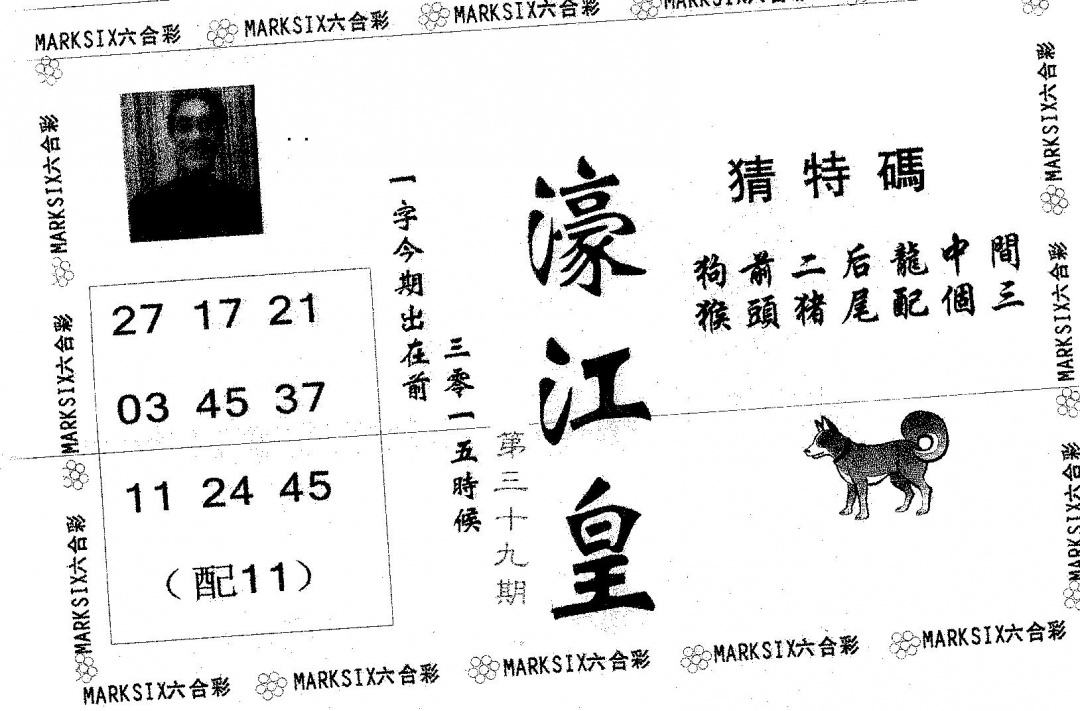 MARKSIX六合彩 MARKSIX六合彩 MARKSIX六合彩
MARKSIX六合彩
MARKSIX六合彩
MARKSIX六合彩
猜特碼
狗前二后龍中間
猴頭猪尾配個三
濠江皇
第三十九期
一字今期出在前
三零一五時候
27 17 21
03 45 37
11 24 45
(配11)
MARKSIX六合彩
MARKSIX六合彩
MARKSIX六合彩
MARKSIX六合彩 MARKSIX六合彩 MARKSIX六合彩 MARKSIX六合彩 MARKSIX六合彩